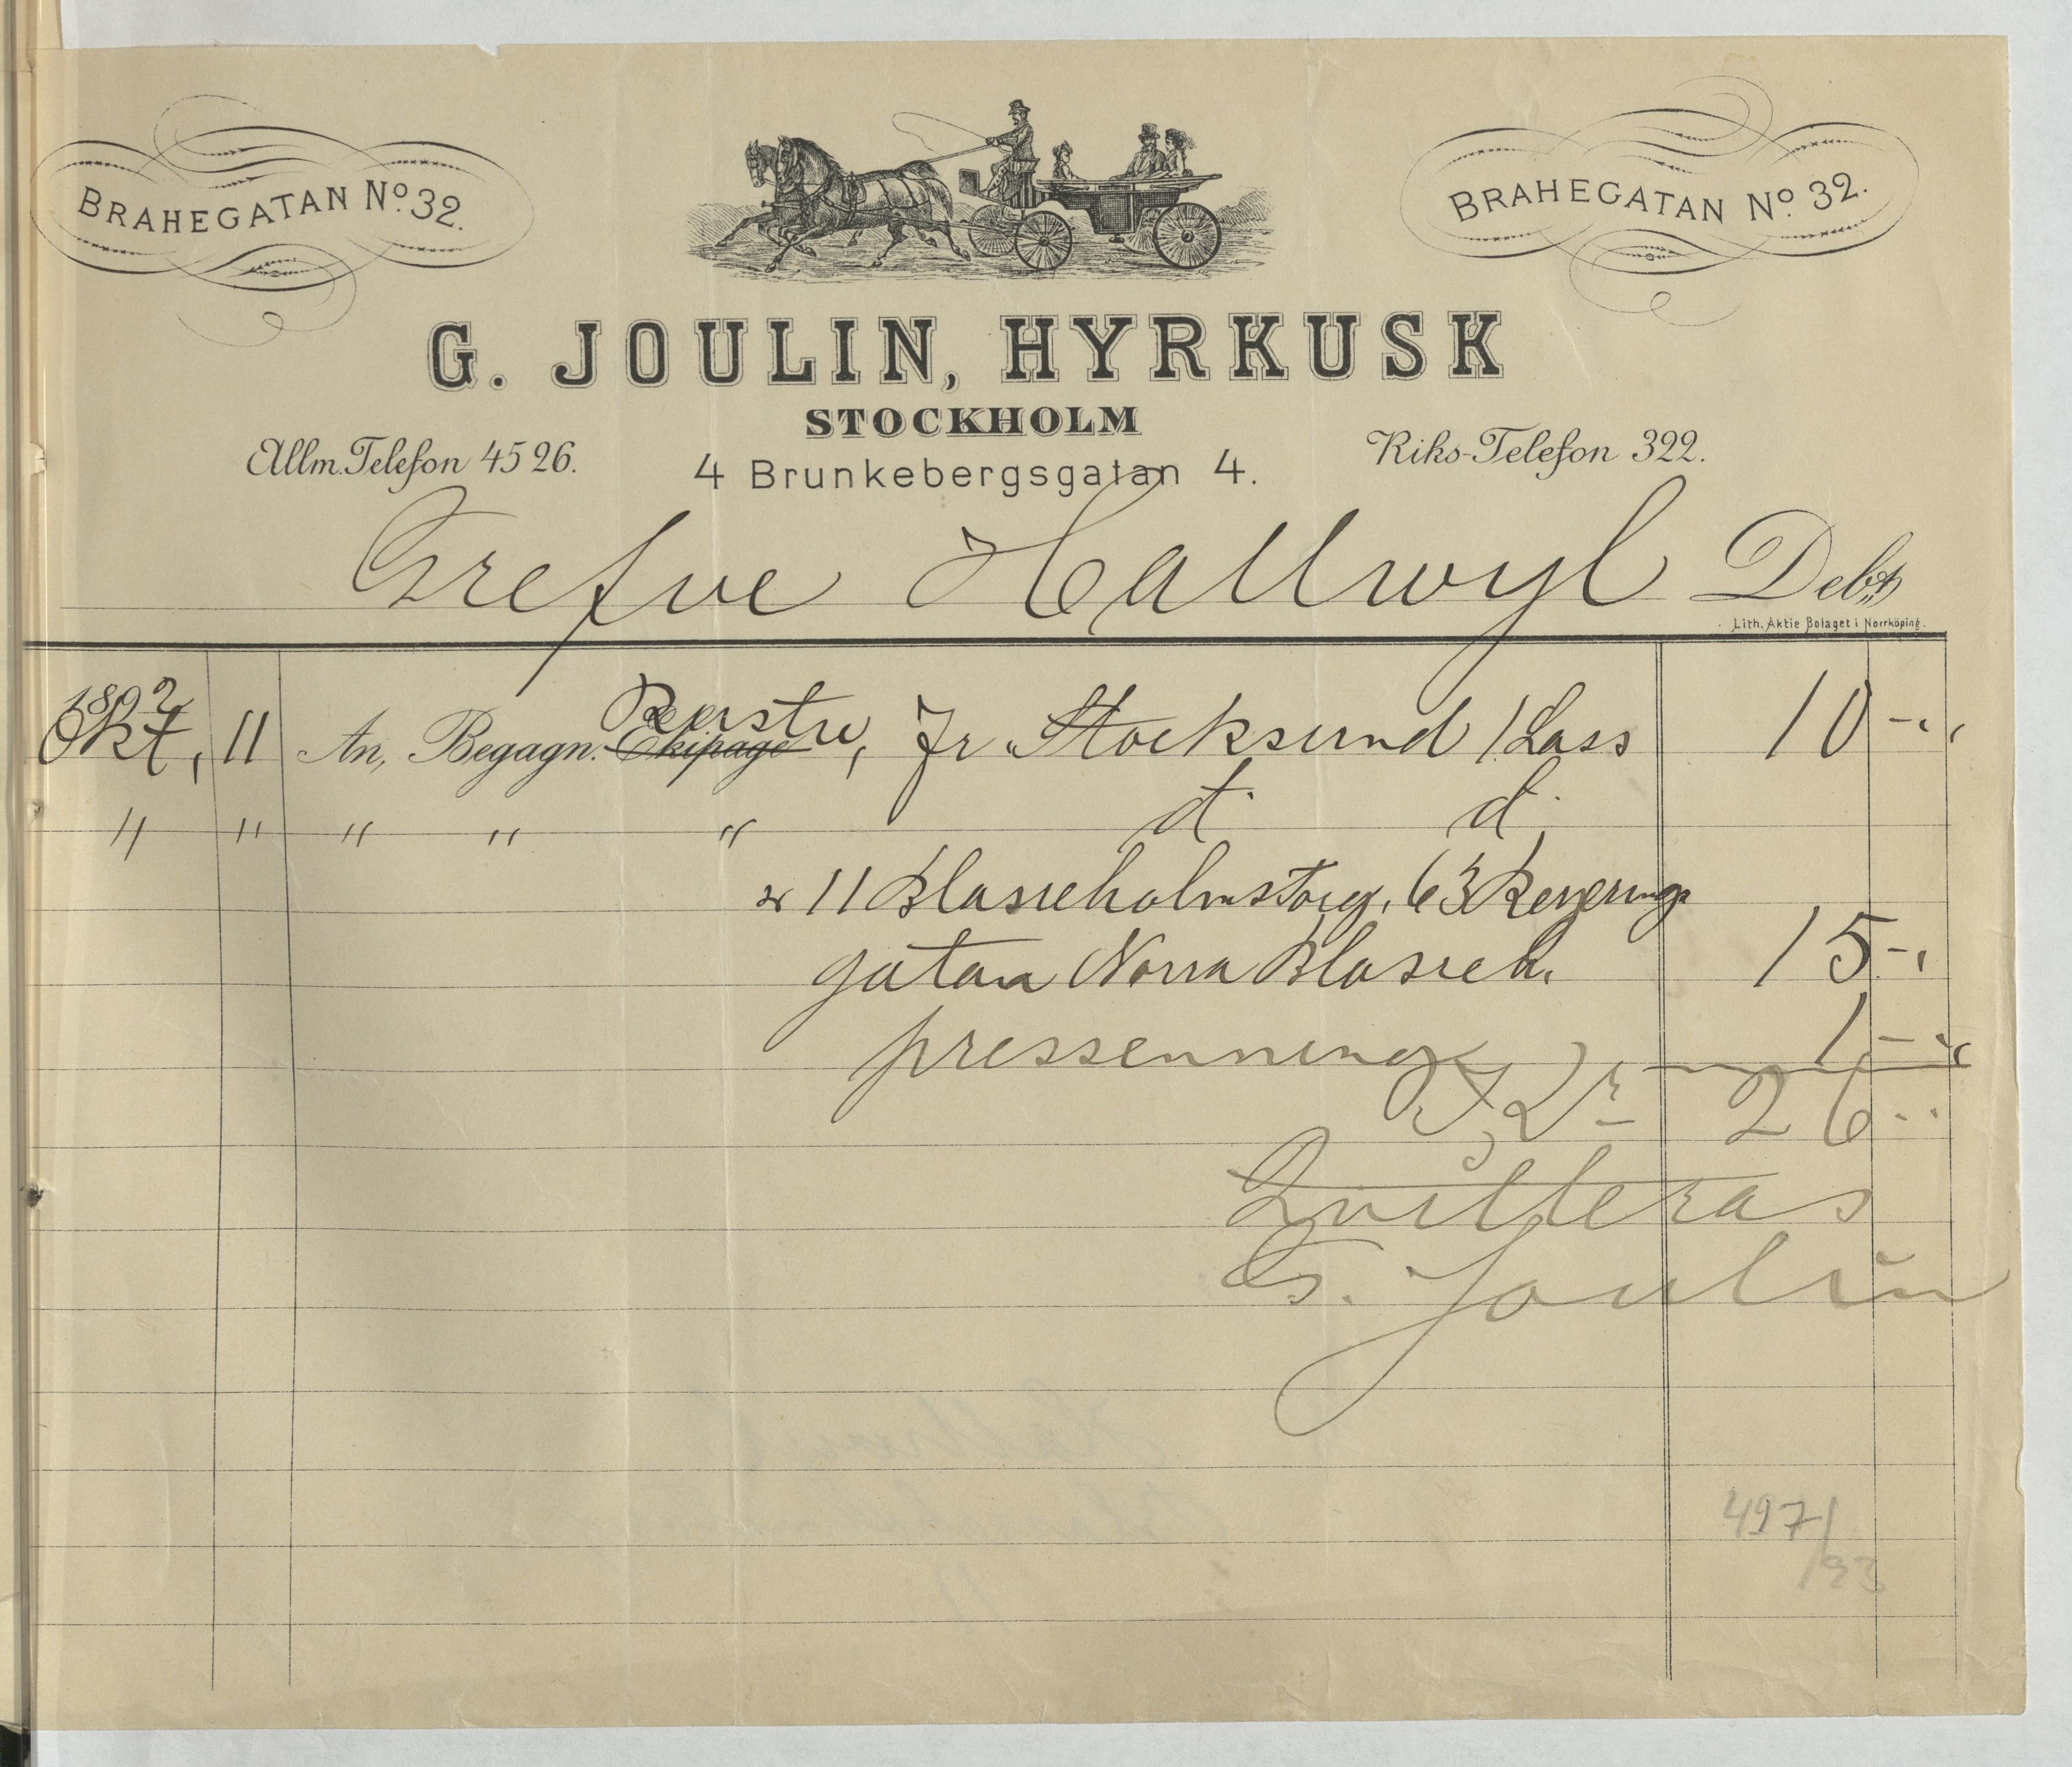 BRAHEGATAN No. 32.
BRAHEGATAN No. 32.
G. JOULIN, HYRKUSK
STOCKHOLM
Allm. Telefon 4526.
4 Brunkebergsgatan 4.
Riks-Telefon 322.
Grefve Hallwyl Debt
Lith. Aktie Bolaget i Norrköping.
1892
Okt, 11 An, Begagn. Ekipage, fr Stocksund 1 Lass 10 -"
" " " " " d. d.
11 Blasieholmstorg, 63 Regerings
gatan Norra Blasieh. 15 -"
pressenning 1 -"
Kr 26 "
Qvitteras
G. Joulin
497/
93